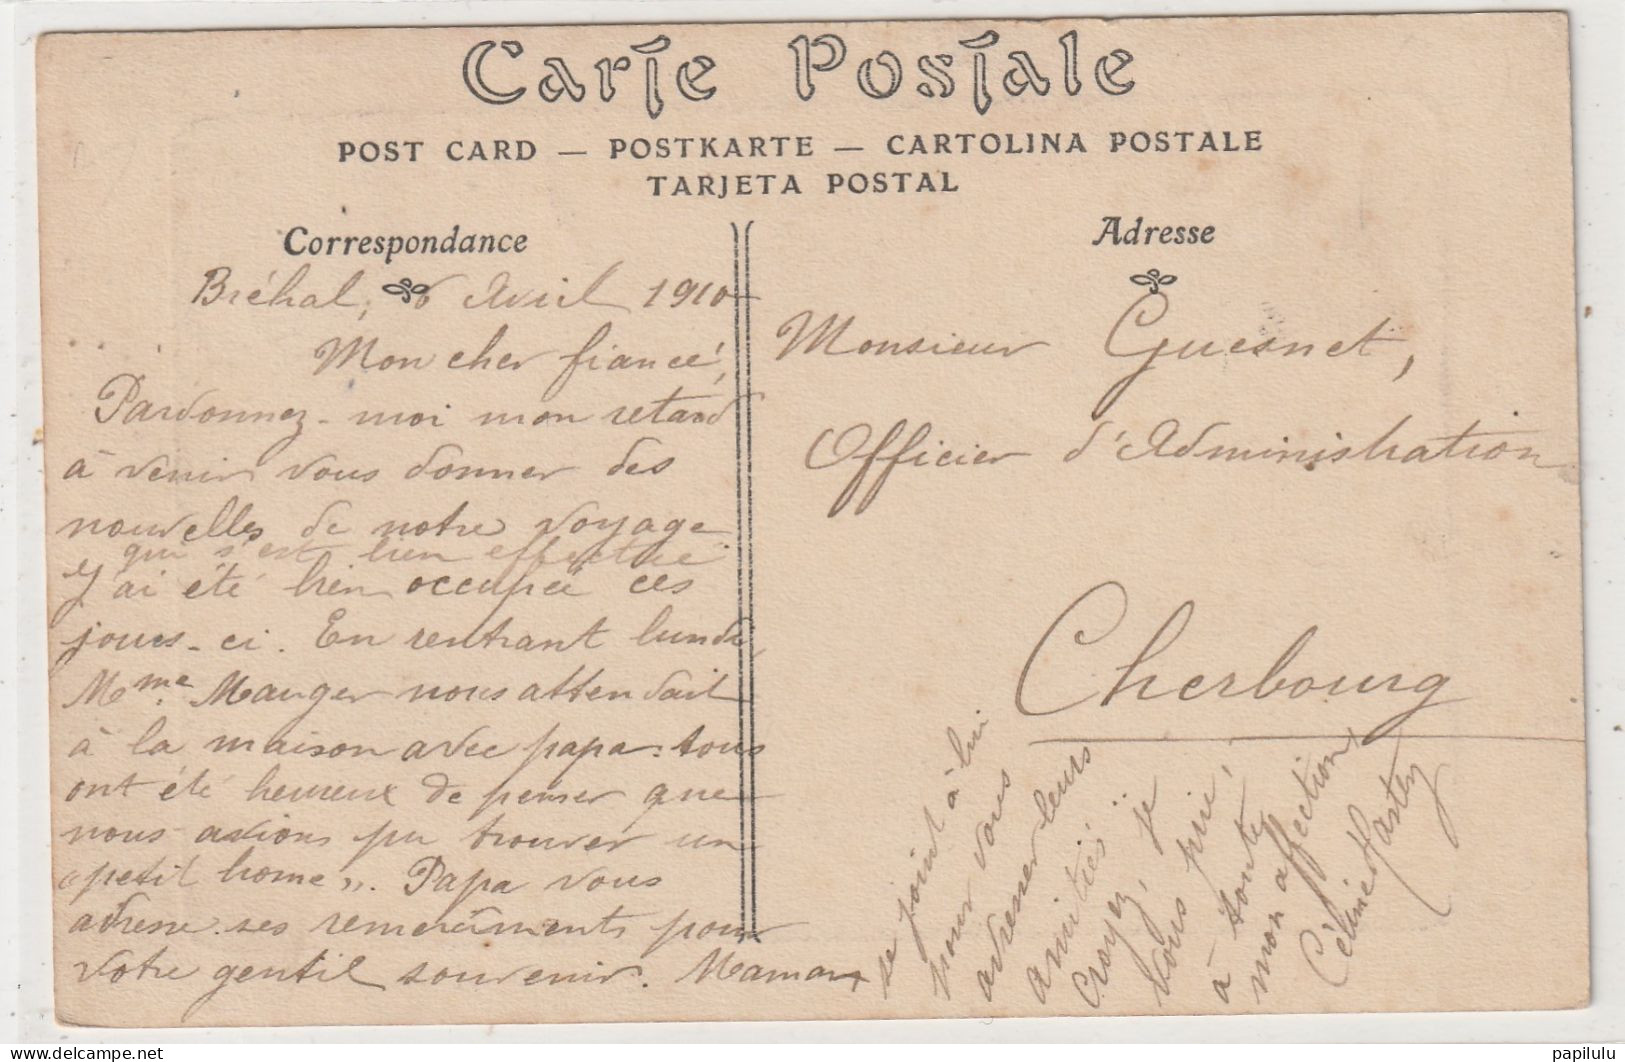 Carte Postale
POST CARD — POSTKARTE — CARTOLINA POSTALE
TARJETA POSTAL
Correspondance
Bréhal, 6 Avril 1910
Mon cher fiancé,
Pardonnez-moi mon retard
à venir vous donner des
nouvelles de notre voyage
qui s'est bien effectué.
J'ai été bien occupée ces
jours-ci. En rentrant lundi,
Mme. Mauger nous attendait
à la maison avec papa: tous
ont été heureux de penser que
nous avions pu trouver un
"petit home". Papa vous
adresse ses remerciments pour
votre gentil souvenir. Maman
se joint à lui
pour vous
adresser leurs
amitiés.
Croyez, je
vous prie,
à toute
mon affection,
Céline
Adresse
Monsieur Guesnet,
Officier d'Administration
Cherbourg
papilulu